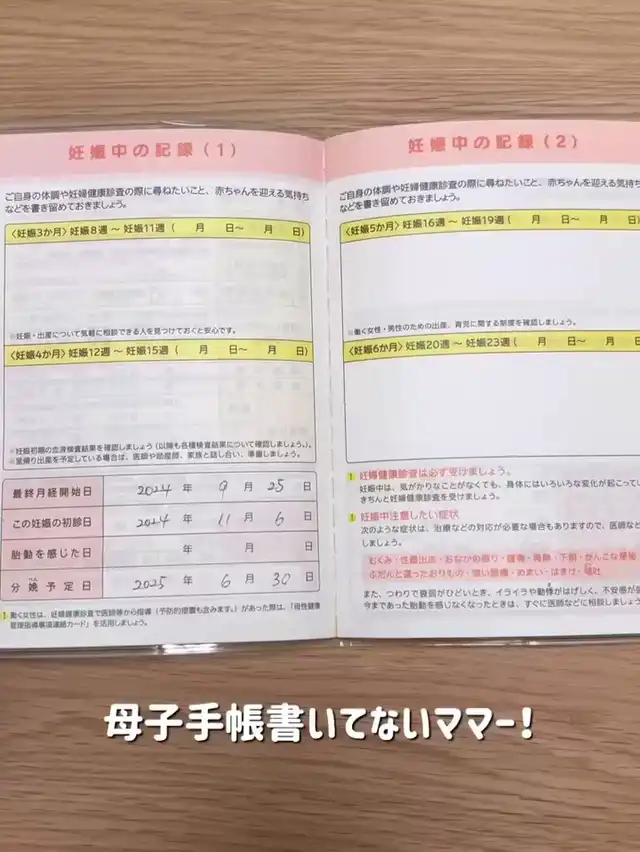 妊娠中の記録(1)
ご自身の体調や妊婦健康診査の際に尋ねたいこと、赤ちゃんを迎える気持ち
などを書き留めておきましょう。
〈妊娠3か月〉妊娠8週~妊娠11週( 月 日~ 月 日)
※妊娠・出産について気軽に相談できる人を見つけておくと安心です。
〈妊娠4か月〉妊娠12週~妊娠15週( 月 日~ 月 日)
※妊娠初期の血液検査結果を確認しましょう(以降も各種検査結果について確認しましょう。)。
※里帰り出産を予定している場合は、医師や助産師、家族と話し合い、準備しましょう。
最終月経開始日 2024年 9月 25日
この妊娠の初診日 2024年 11月 6日
胎動を感じた日 年 月 日
分娩予定日 2025年 6月 30日
! 働く女性は、妊婦健康診査で医師等から指導(予防的措置も含みます。)があった際は、「母性健康
管理指導事項連絡カード」を活用しましょう。
妊娠中の記録(2)
ご自身の体調や妊婦健康診査の際に尋ねたいこと、赤ちゃんを迎える気持
などを書き留めておきましょう。
〈妊娠5か月〉妊娠16週~妊娠19週( 月 日~ 月 日
※働く女性・男性のための出産、育児に関する制度を確認しましょう。
〈妊娠6か月〉妊娠20週~妊娠23週( 月 日~ 月 日
! 妊婦健康診査は必ず受けましょう。
妊娠中は、気がかりなことがなくても、身体にはいろいろな変化が起こってい
きちんと妊婦健康診査を受けましょう。
! 妊娠中注意したい症状
次のような症状は、治療などの対応が必要な場合もありますので、医師など
しましょう。
むくみ・性器出血・おなかの張り・腹痛・発熱・下痢・がんこな便秘
ふだんと違ったおりもの・強い頭痛・めまい・はきけ・嘔吐
また、つわりで衰弱がひどいとき、イライラや動悸がはげしく、不安感が強
今まであった胎動を感じなくなったときは、すぐに医師などに相談しましょう
母子手帳書いてないママー!